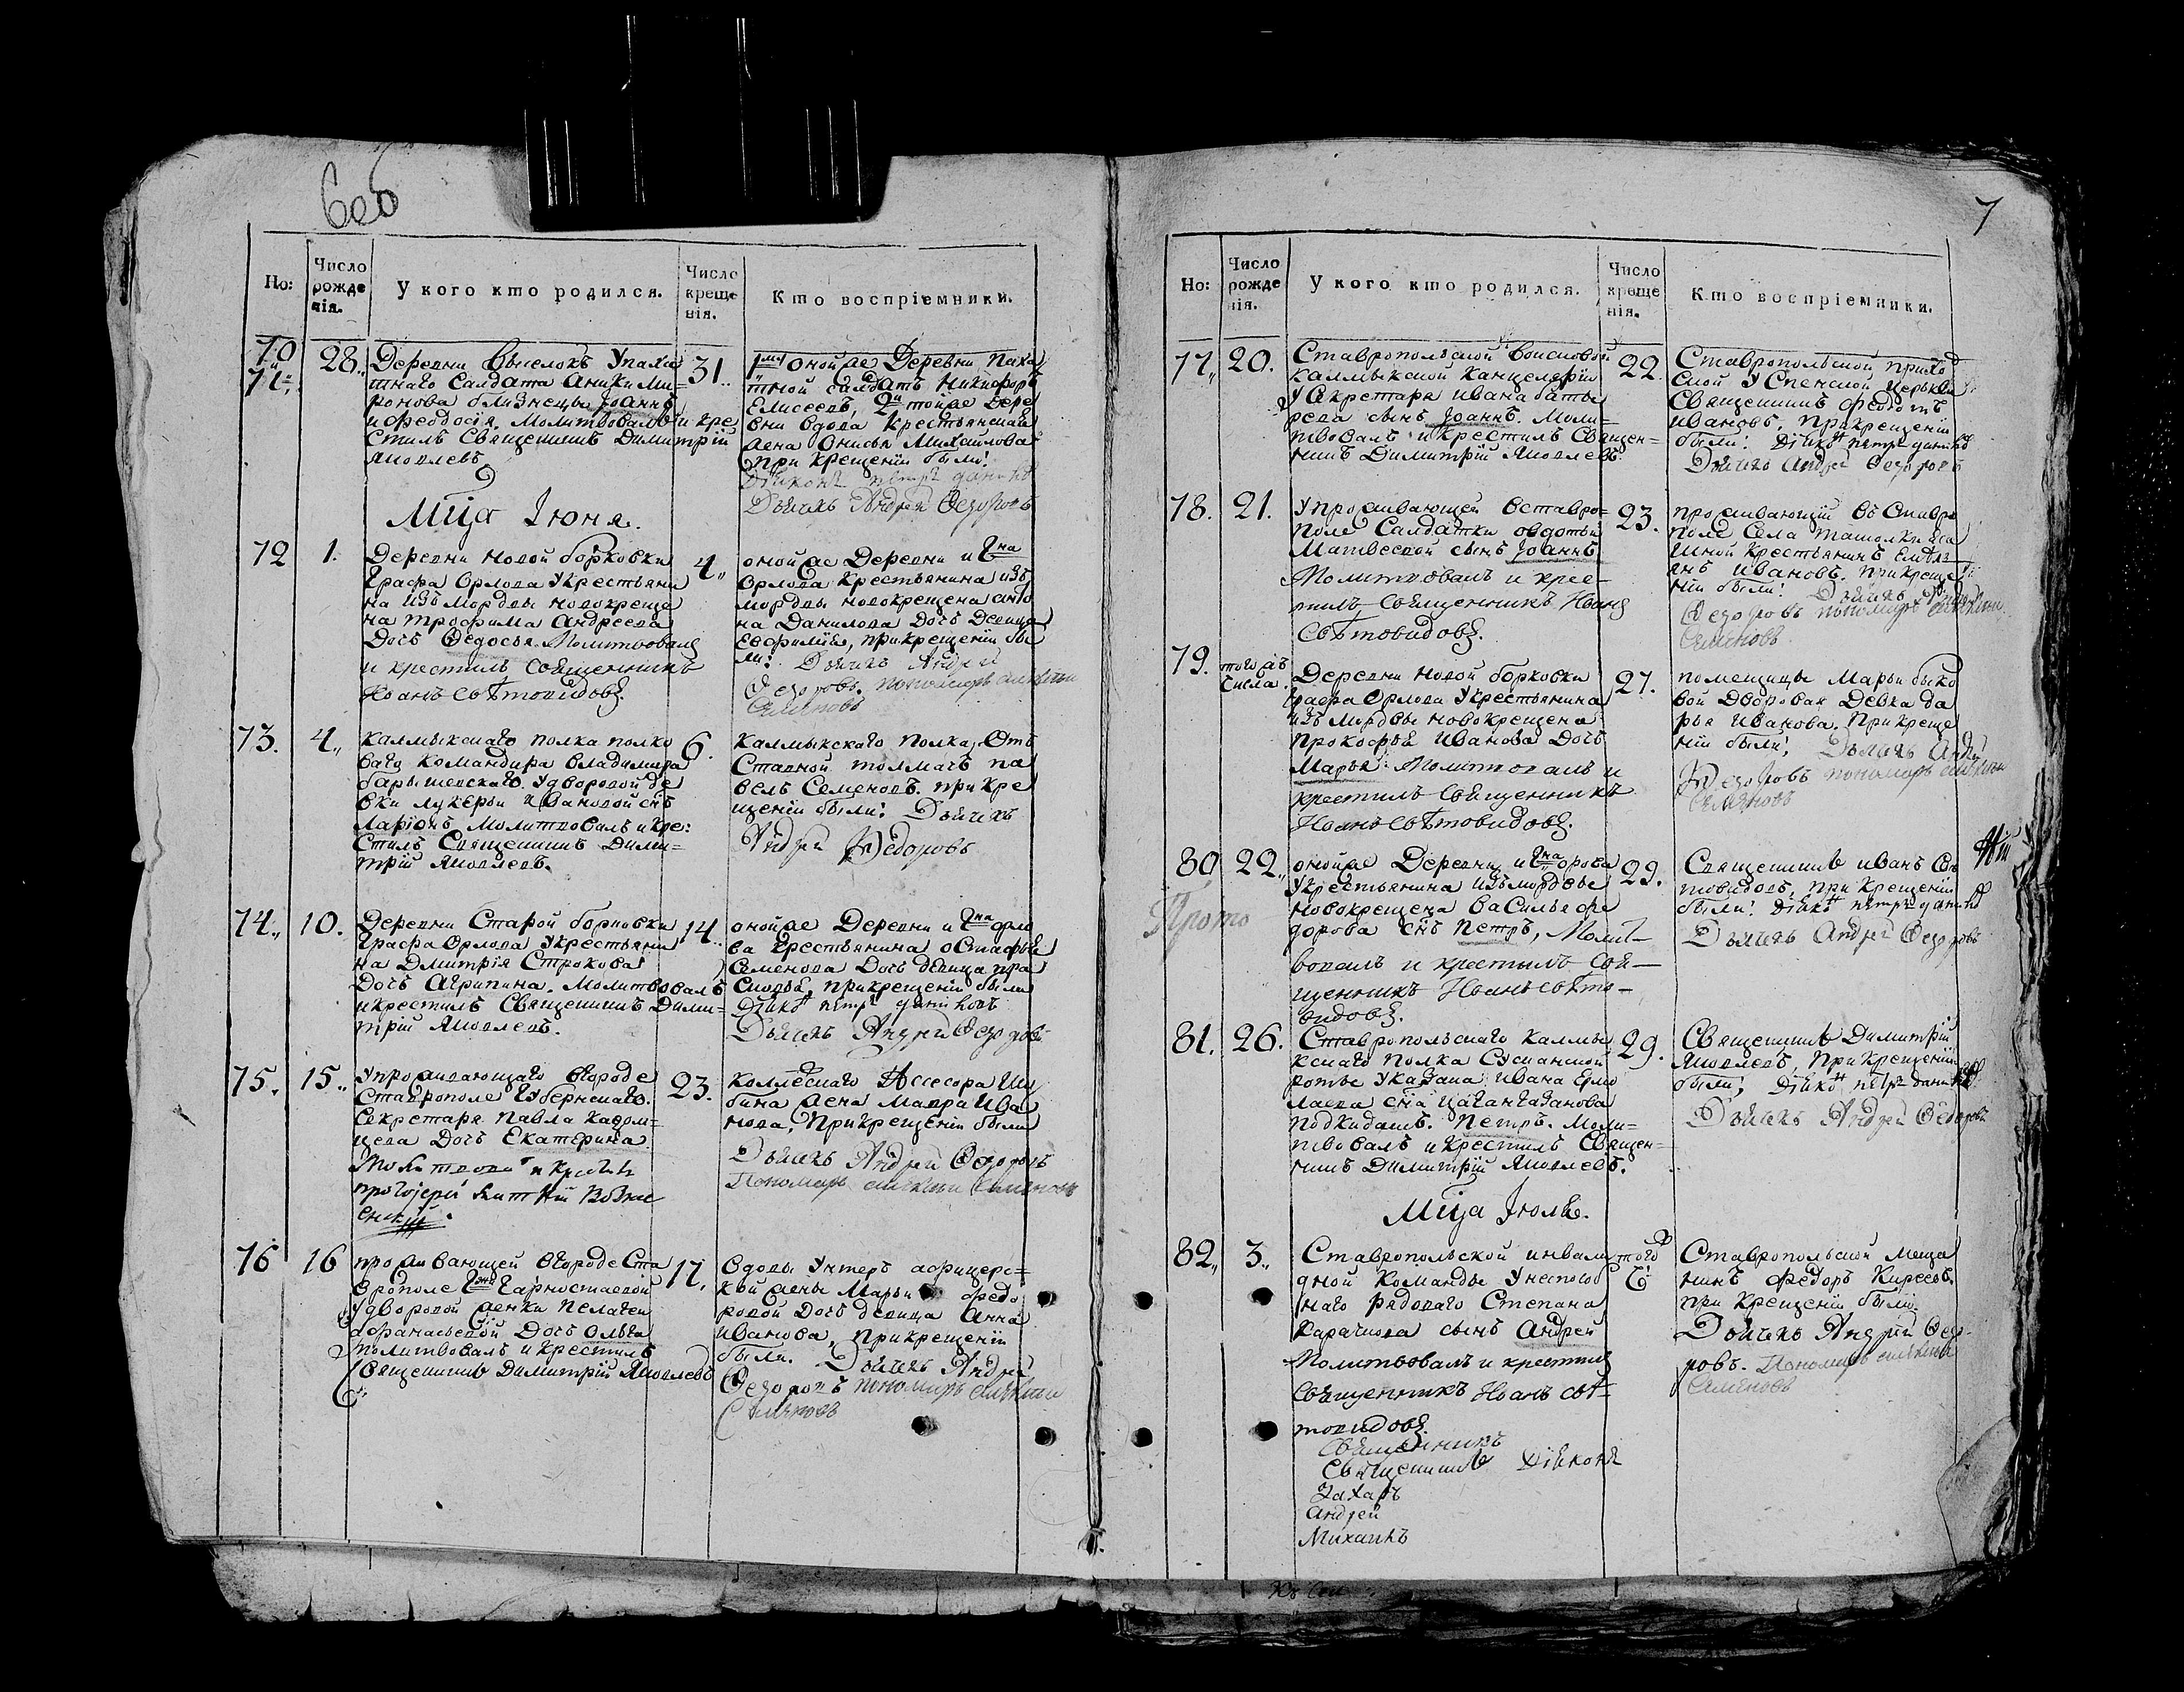 6 об
Но:
Число рожденія.
У кого кто родился.
Число крещенія.
Кто воспріемники.
70 и 71.
28.
Деревни Выселокъ У пахатнаго салдата Аники Миронова близнецы Іоаннъ и Феодосія. Молитвовалъ и крестилъ Священникъ Димитрій Яковлевъ
31.
оной же Деревни Пахатной салдатъ Никифоръ Елисеевъ, 2й той же Деревни вдова крестьянская жена Онисья Михайлова при крещеніи были:
Діаконъ петръ
Дьячекъ Андрей Федоровъ
Мца Іюня.
72
1.
Деревни Новой борковки Графа Орлова У крестьянина изъ Мордвы новокрещена трофима Андреева Дочь Федосья. Молитвовалъ и крестилъ священникъ Иоанъ Свѣтовидовъ.
4.
оной же Деревни и Гна Орлова крестьянина изъ мордвы новокрещена Данилова Дочь Девица Евфимія, при крещеніи были: Дьячекъ Андрей Федоровъ. пономарь Семеновъ
73.
4.
Калмыкскаго полка полковаго Командира Владимира барышевскаго У дворовой девки лукерьи Ивановой снъ Ларіонъ Молитвовалъ и крестилъ Священникъ Димитрій Яковлевъ.
6.
Калмыкскаго полка Отставной толмачъ павелъ Семеновъ. при крещеніи были: Дьячекъ Андрей Федоровъ
74.
10.
Деревни Старой борковки Графа Орлова У крестьянина Дмитрія Строкова Дочь Агрипина. Молитвовалъ и крестилъ Священникъ Димитрій Яковлевъ.
14.
оной же Деревни и Гна орлова крестьянина остафья Семенова Дочь девица прасковья, при крещеніи были
Діаконъ петръ
Дьячекъ Андрей Федоровъ
75.
15.
У проживающаго вгороде Ставрополе Губернскаго Секретаря Павла Дочь Екатерина.
Молитвовалъ и крестилъ протоіерей
23.
Коллежскаго Ассесора жена Мавра Иванова, При крещеніи были
Дьячекъ Андрей Федоровъ
Пономарь Семеновъ
76
16
проживающей вгороде Ставрополе У дворовой женки пелагеи Афанасьевой Дочь Ольга молитвовалъ и крестилъ Священникъ Димитрій Яковлевъ
17.
Вдовы Унтеръ афицерской жены Марьи Федоровой Дочь девица Анна Иванова, при крещеніи были. Дьячекъ Андрей Федоровъ пономарь Семеновъ
7
Но:
Число рожденія.
У кого кто родился.
Число крещенія.
Кто воспріемники.
77.
20.
Ставропольской Воисковой калмыкской Канцеляріи Секретаря Ивана сынъ Іоаннъ. Молитвовалъ и крестилъ Священникъ Димитрій Яковлевъ.
22.
Ставропольской Приходской Успенской церькви Священникъ Федотъ Ивановъ. При крещеніи были: Діаконъ петръ
Дьячекъ Андрей Федоровъ
78.
21.
У проживающей вставрополе Салдатки овдотьи Матвеевой сынъ Іоаннъ
Молитвовалъ и крестилъ Священникъ Иоанъ Свѣтовидовъ.
23.
проживающій въ Ставрополе Села крестьянинъ Ивановъ. при крещеніи были: Дьячекъ Андрей Федоровъ пономарь Семеновъ
79.
того жъ числа.
Деревни Новой борковки Графа Орлова У крестьянина изъ мордвы новокрещена Прокофья Иванова Дочь Марья: Молитвовалъ и крестилъ Священникъ Иоанъ Свѣтовидовъ.
27.
помещицы Марьи Дворовая Девка Дарья Иванова. При крещеніи были: Дьячекъ Андрей Федоровъ пономарь Семеновъ
80
22.
оной же Деревни и Гна орлова У крестьянина изъ мордвы новокрещена василья федорова снъ Петръ, Молитвовалъ и крестилъ Священникъ Иоанъ Свѣтовидовъ.
29.
Священникъ Иванъ Свѣтовидовъ, При крещеніи были: Діаконъ петръ
Дьячекъ Андрей Федоровъ
Прото
81.
26.
Ставропольскаго Калмыкскаго полка Сусканской роты У казака Ивана Ермолаева сна подкидышъ. Петръ. Молитвовалъ и крестилъ Священникъ Димитрій Яковлевъ.
29.
Священникъ Димитрій Яковлевъ, При крещеніи были: Діаконъ петръ
Дьячекъ Андрей Федоровъ
Мца Іюля.
82.
3.
Ставропольской инвалидной Команды У неспособнаго рядоваго Степана сынъ Андрей
Молитвовалъ и крестилъ Священникъ Иоанъ Свѣтовидовъ.
того ж
Ставропольской Мещанинъ Федоръ Киреевъ. при крещеніи были:
Дьячекъ Андрей Федоровъ. Пономарь Семеновъ
Священникъ
Священникъ Діаконъ
Захаръ
Андрей
Михаилъ